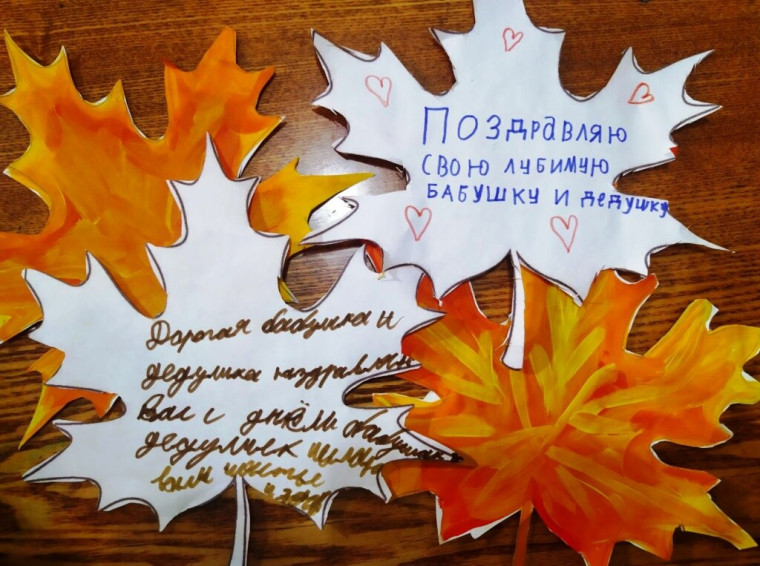 Поздравляю
свою лубимую
бабушку и дедушку
Дорогая бабушка и
дедушка поздравляем
Вас с днём бабушек
дедушек желаю
вам